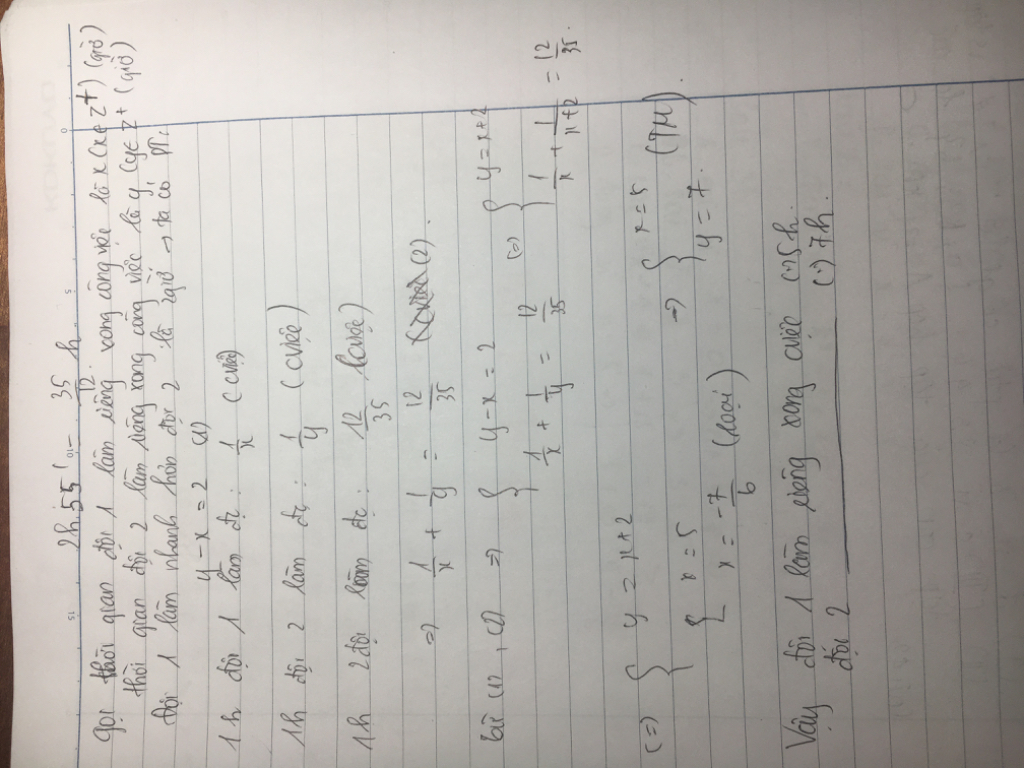 2h55' = 35/12 h.
Gọi thời gian đội 1 làm riêng xong công việc là x (x ∈ Z+) (giờ)
thời gian đội 2 làm riêng xong công việc là y (y ∈ Z+ (giờ)
Đội 1 làm nhanh hơn đội 2 là 2giờ → ta có pt:
y - x = 2 (1)
1h đội 1 làm đc: 1/x (cviệc)
1h đội 2 làm đc: 1/y (cviệc)
1h 2 đội làm đc: 12/35 (cviệc)
=> 1/x + 1/y = 12/35 (2).
từ (1), (2) => { y - x = 2 (=) { y = x+2
1/x + 1/y = 12/35 1/x + 1/x+2 = 12/35.
(=) { y = x+2
[ x = 5 => { x = 5 (TM).
x = -7/6 (loại) y = 7.
Vậy đội 1 làm riêng xong cviệc (:) 5h.
đội 2 (:) 7h.